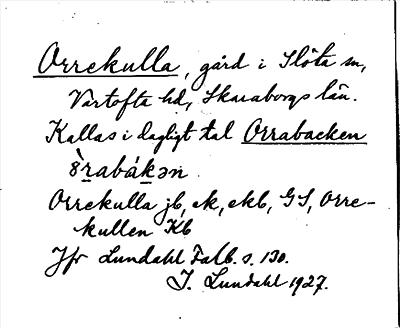 Orrekulla, gård i Slöta sn,
Vartofta hd, Skaraborgs län.
Kallas i dagligt tal Orrabacken
Orrekulla jb, ek, ekb, GS, Orre-
kullen Kb
Jfr Lundahl Falb. s. 130.
I. Lundahl 1927.